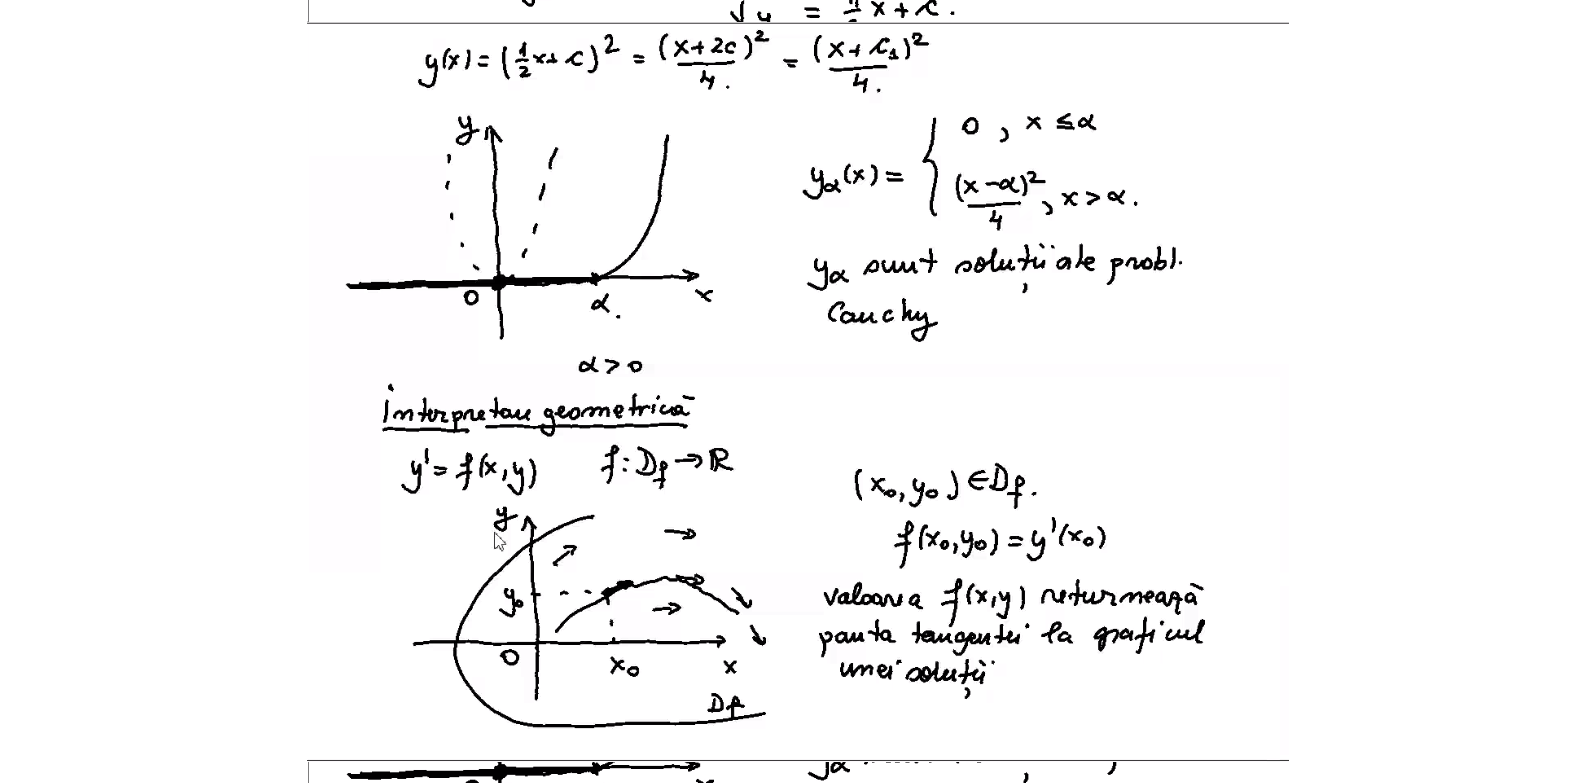 √y = 1/2 x + c.
y(x) = (1/2 x + c)² = (x+2c)²/4. = (x+c₁)²/4.
y
0
α.
x
α > 0
yα(x) = { 0 , x ≤ α
(x-α)²/4 , x > α.
yα sunt soluții ale probl.
Cauchy
Interpretare geometrică
y' = f(x,y) f : Df → ℝ
y
y₀
0
x₀
x
Df
(x₀, y₀) ∈ Df.
f(x₀,y₀) = y'(x₀)
valoarea f(x,y) returnează
panta tangentei la graficul
unei soluții